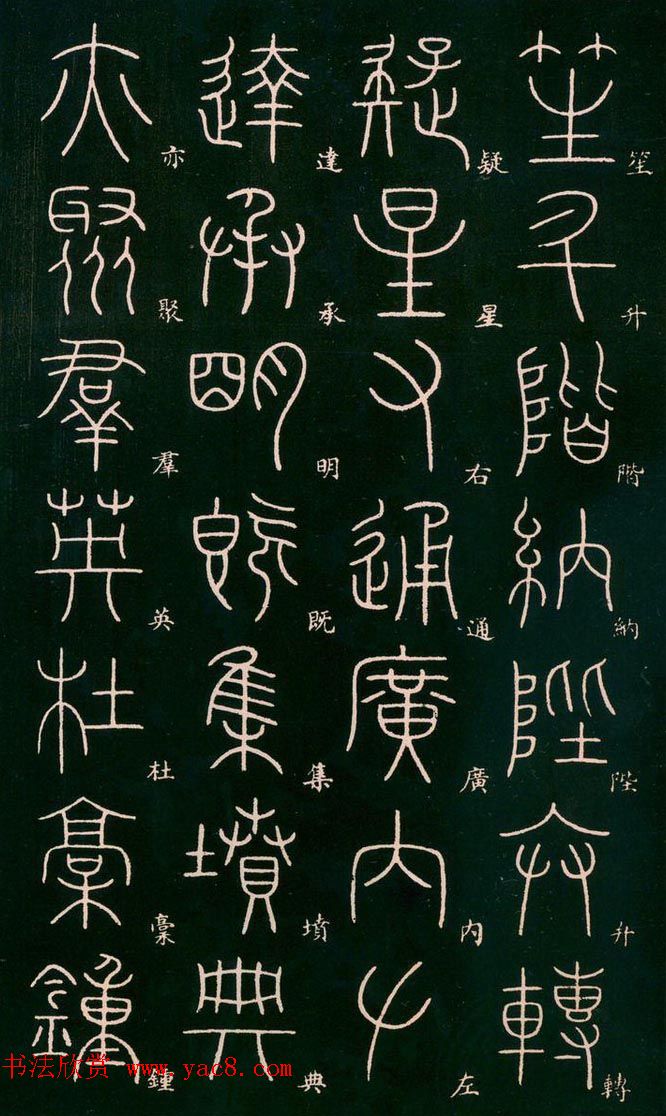 笙升階納陛弁轉
疑星右通廣内左
達承明既集墳典
亦聚羣英杜稾鍾
书法欣赏 www.yac8.com